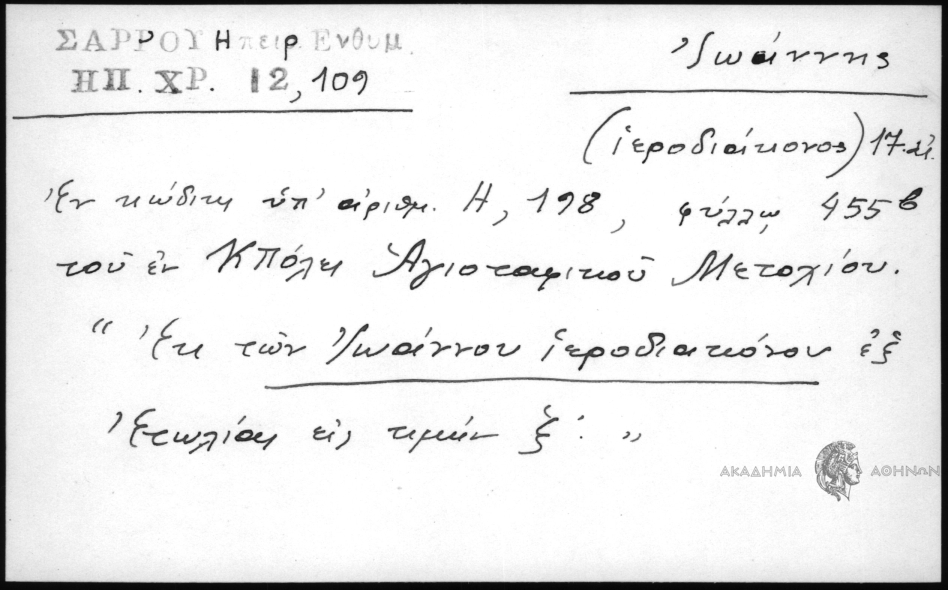 ΣΑΡΡΟΥ Ηπειρ. Ενθυμ.
ΗΠ. ΧΡ. 12, 109
Ἰωάννης
(ἱεροδιάκονος) 17. αἰ.
Ἐν κώδικι ὑπ' ἀριθμ. Η, 198, φύλλῳ 455β
τοῦ ἐν ΚΠόλει Ἁγιοταφικοῦ Μετοχίου.
"Ἐκ τῶν Ἰωάννου ἱεροδιακόνου ἐξ
εἰς τιμὴν ξ΄."
ΑΚΑΔΗΜΙΑ ΑΘΗΝΩΝ